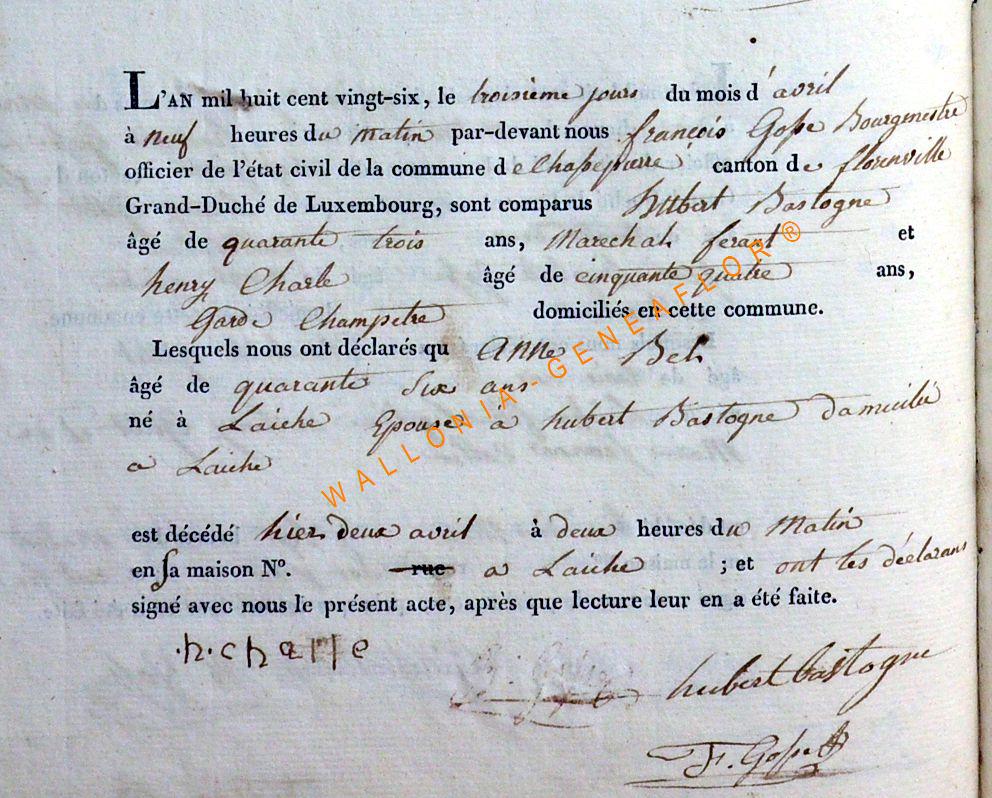 L'AN mil huit cent vingt-six, le troisième jours du mois d'avril
à neuf heures du matin par-devant nous françois Gosse Bourgmestre
officier de l'état civil de la commune de Chassepierre canton de florenville
Grand-Duché de Luxembourg, sont comparus hubert Bastogne
âgé de quarante trois ans, Marechal ferant et
henry Charle âgé de cinquante quatre ans,
Garde Champetre domiciliés en cette commune.
Lesquels nous ont déclarés qu anne
âgé de quarante Six ans
né à Laiche Epouse à hubert Bastogne domicilié
a Laiche
est décédé hier deux avril à deux heures du Matin
en sa maison N°. rue a Laiche ; et ont les déclarans
signé avec nous le présent acte, après que lecture leur en a été faite.
h. charle
hubert bastogne
F. Gosse
WALLONIA-GENEAFLOR®